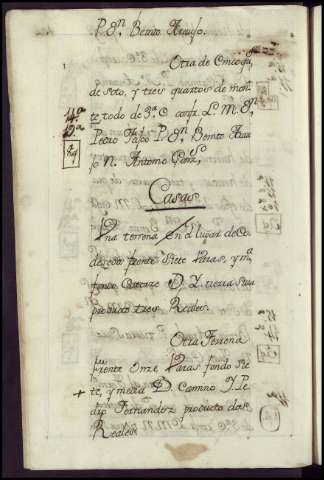 P. Dn. Benito Araujo.
1 Otra de Cinco qu.
de soto, y tres quartos de mon-
te todo de 3ª C confr. L. M. Dn.
Pedro P. Dn. Benito Arau-
jo N. Antonio
14ª
15ª
Casas
Una terrena en el lugar de
frente Siete Varas, y m.ª
fondo D. Y. tierra Sua
producto tres Reales.
Otra Terrena
frente Onze Varas fondo Sie-
te, y media D. Camino Y. Pe-
dro Fernandez producto dos
Reales